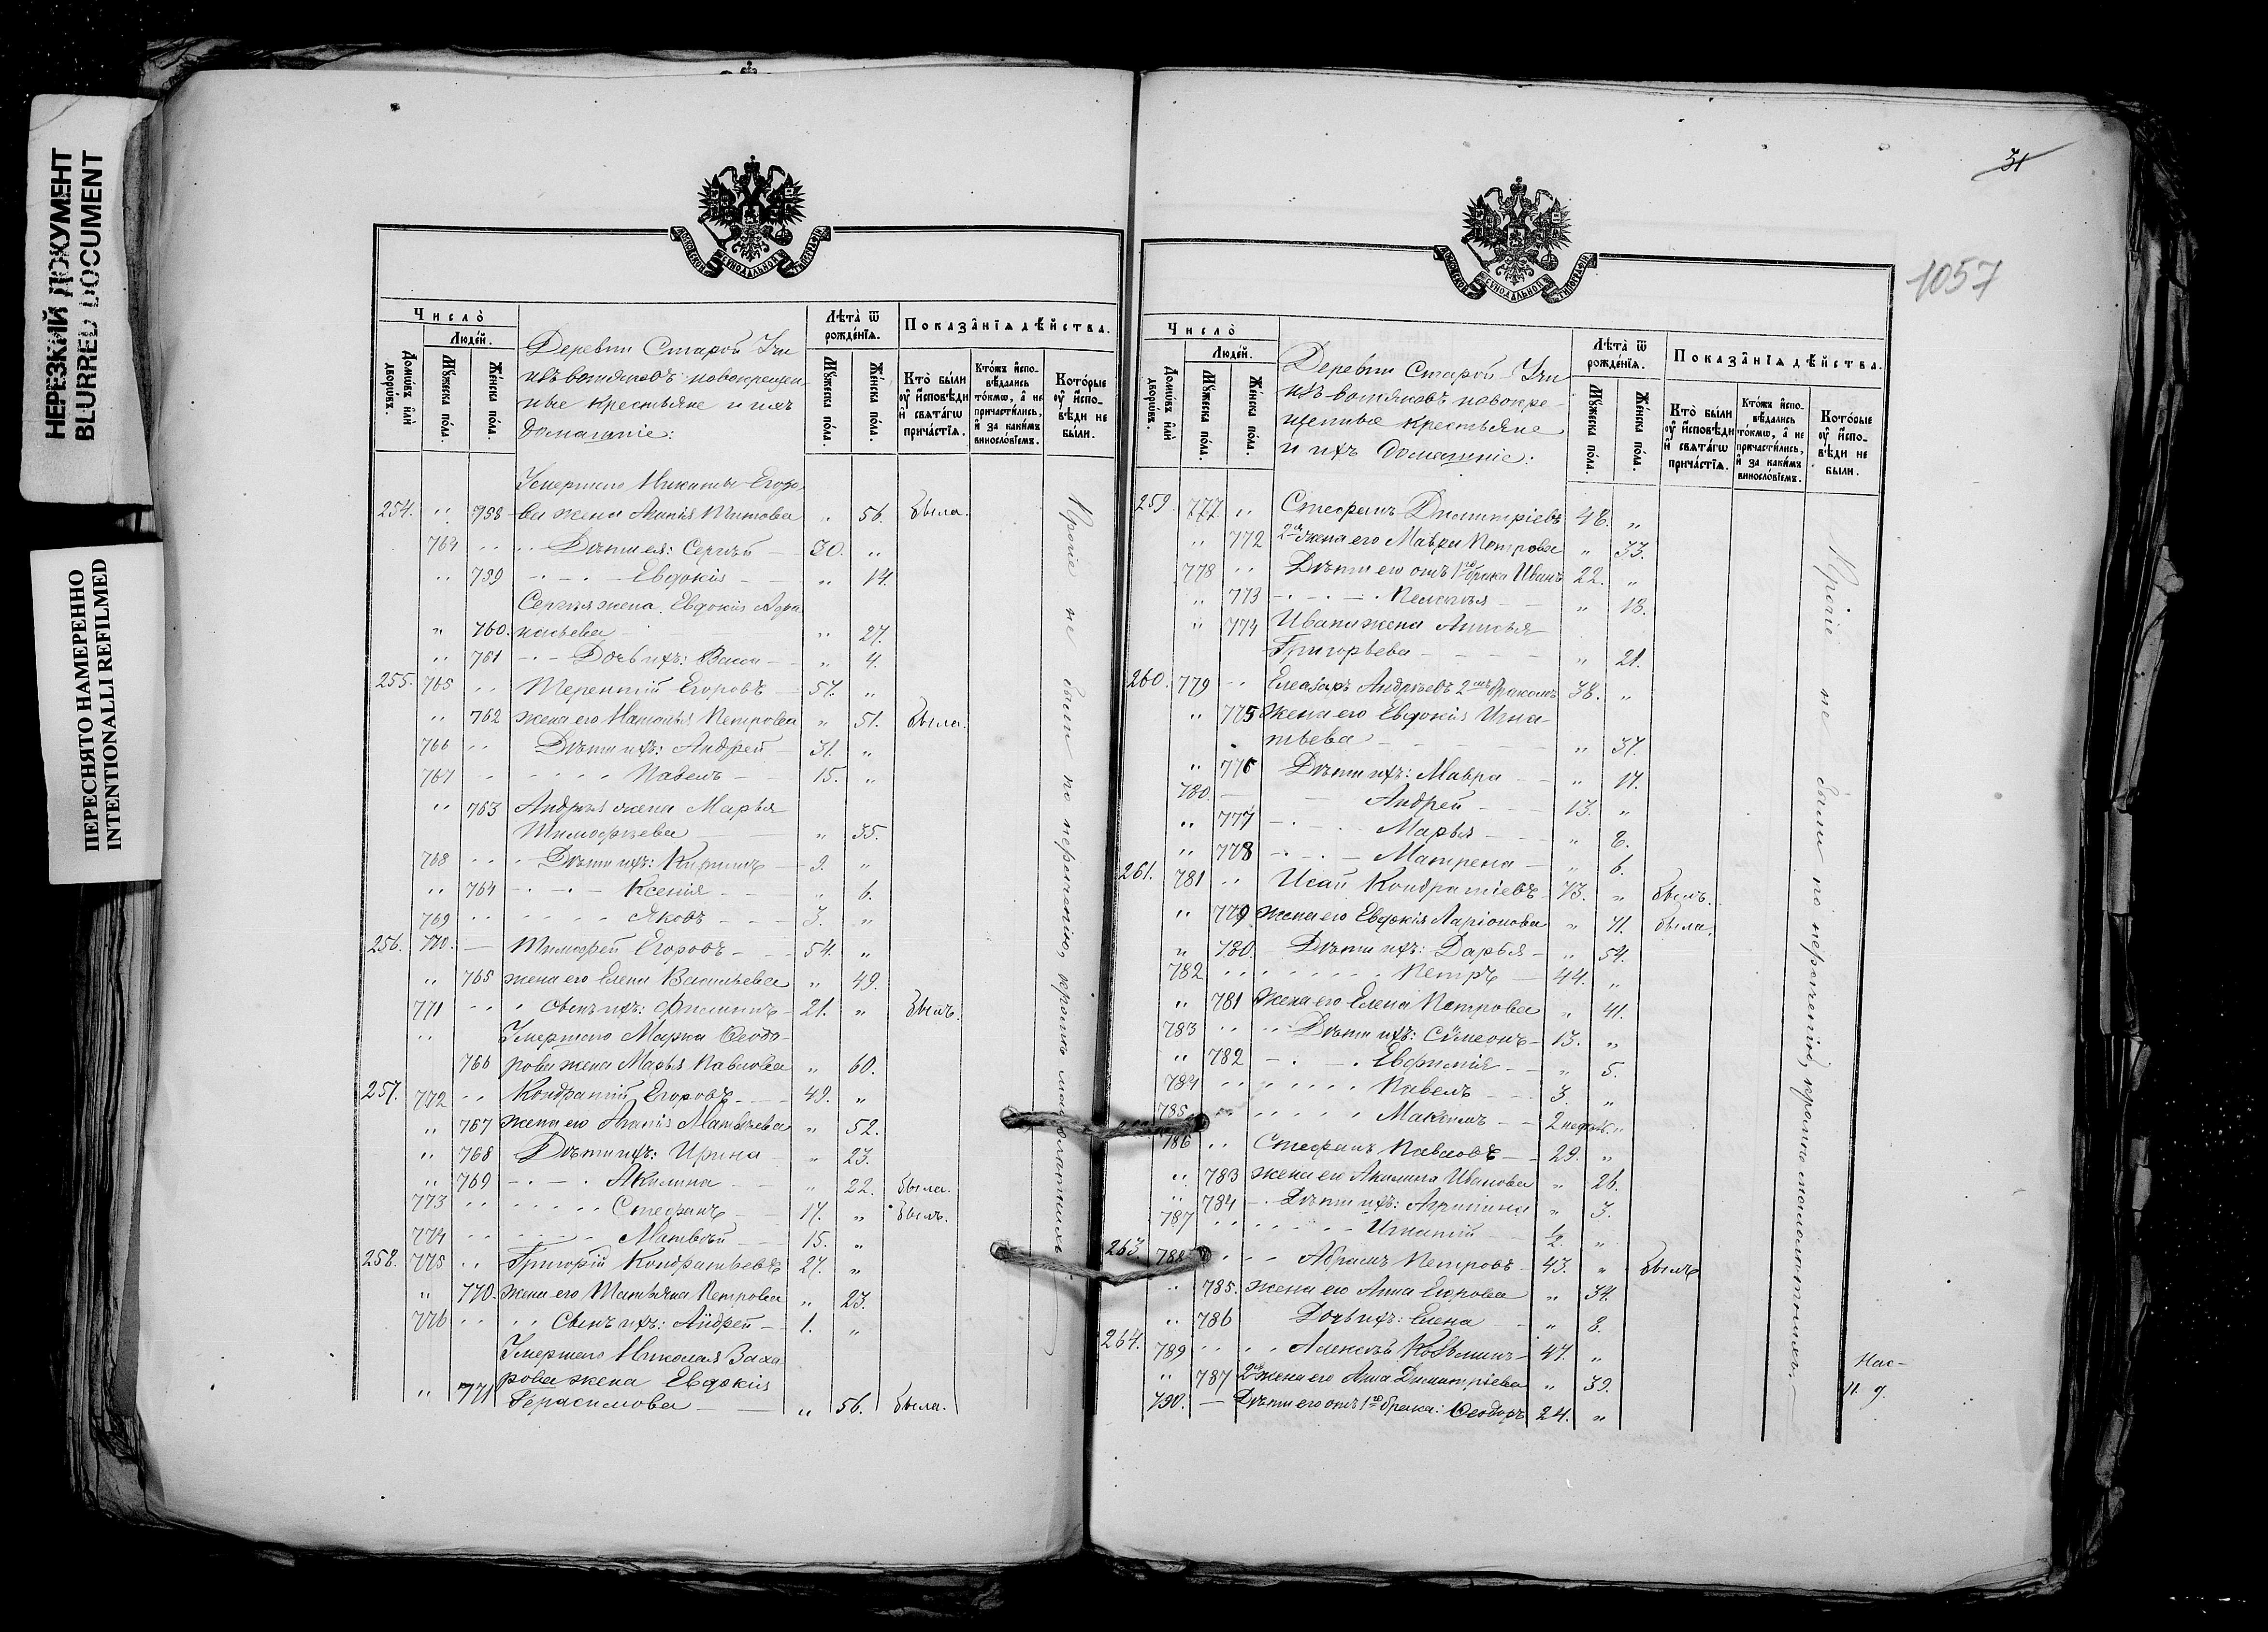 НЕРЕЗКИЙ ДОКУМЕНТ
BLURRED DOCUMENT
ПЕРЕСНЯТО НАМЕРЕННО
INTENTIONALLI REFILMED
Число
Людей.
Домѡвъ или дворѡвъ.
Мꙋжеска пола.
Женска пола.
Деревни Старой Учи
изъ вотяковъ новокрещен-
ные крестьяне и ихъ
домашніе:
Лѣта ѿ рожденїѧ.
Мꙋжеска пола.
Женска пола.
Показанїѧ дѣйства.
Кто были оу исповѣди и свѧтагѡ причастїѧ.
Ктожъ исповѣдались токмѡ, а не причастились, и за какимъ винословїемъ.
Которые оу исповѣди не были.
Умершаго Никиты Егоро-
254. " 758 ва жена Агапія Титова " 56. была.
764 " Дѣти ея: Сергѣй 30. "
" 759 Евдокія " 14.
Сергѣя жена Евдокія
" 760. " 27.
" 761 Дочь ихъ: Васса " 4.
255. 765 " Терентій Егоровъ 57. "
" 762 жена его Наталья Петрова " 51. была.
766 " Дѣти ихъ: Андрей 31. "
767 " Павелъ 15. "
" 763 Андрея жена Марья
Тимофѣева " 35.
768 " Дѣти ихъ: Кириллъ 9. "
" 764 Ксенія " 6.
769 " Яковъ 3. "
256. 770. — Тимофей Егоровъ 54. "
" 765 жена его Елена Васильева " 49.
771 " Сынъ ихъ: Филиппъ 21. " былъ.
" Умершаго Марка Ѳеодо-
766 рова жена Марья Павлова " 60.
257. 772 " Кондратій Егоровъ 49. "
" 767 жена его Агапія Матвѣева " 52.
" 768 Дѣти ихъ: Ирина " 23.
" 769 Акилина " 22. была.
773 " Стефанъ 17. " былъ.
774 " Матвѣй 15. "
258. 775 " Григорій Кондратьевъ 27. "
" 770. жена его Татьяна Петрова " 23.
776 " Сынъ ихъ: Андрей 1. "
Умершаго Николая Заха-
рова жена Евдокія
" 771 Герасимова " 56. была.
Прочіе не были по нерачению, кромѣ малолѣтнихъ
31
1057
Число
Людей.
Домѡвъ или дворѡвъ.
Мꙋжеска пола.
Женска пола.
Деревни Старой Учи
изъ вотяковъ новокре-
щенные крестьяне
и ихъ домашніе:
Лѣта ѿ рожденїѧ.
Мꙋжеска пола.
Женска пола.
Показанїѧ дѣйства.
Кто были оу исповѣди и свѧтагѡ причастїѧ.
Ктожъ исповѣдались токмѡ, а не причастились, и за какимъ винословїемъ.
Которые оу исповѣди не были.
259. 777. " Стефанъ Димитріевъ 48. "
" 772 2я жена его Мавра Петрова " 33.
778 " Дѣти его отъ 1го брака Иванъ 22. "
" 773 Пелагья " 18.
" 774 Ивана жена Анисья
Григорьева " 21.
260. 779 " Елеазаръ Андреевъ 2мъ бракомъ 38. "
" 775 жена его Евдокія Игна-
тьева " 37.
" 776 Дѣти ихъ: Мавра " 17.
780. — Андрей 13. "
" 777 Марья " 8.
" 778 Матрена " 6.
261. 781 " Исай Кондратіевъ 73. " былъ.
" 779 жена его Евдокія Ларіонова " 71. была.
" 780. Дѣти ихъ: Дарья " 54.
782 " Петръ 44. "
" 781 жена его Елена Петрова " 41.
783 " Дѣти ихъ: Сѷмеонъ 13. "
" 782 Евфимія " 5.
784 " Павелъ 3. "
785 " Максимъ 2 недѣл. "
786 " Стефанъ Павловъ 29. "
" 783 жена его Акилина Иванова " 26.
" 784 Дѣти ихъ: Агрипина " 3.
787 " Игнатій ½. "
263 788 " Абрамъ Петровъ 43. " былъ
" 785. жена его Анна Егорова " 34.
" 786 Дочь ихъ: Елена " 8.
264. 789 " Алексѣй Козминъ 47. "
" 787 2я жена его Анна Димитріева " 39.
790. — Дѣти его отъ 1го брака: Ѳеодоръ 24. "
Прочіе не были по нерачению, кромѣ малолѣтнихъ